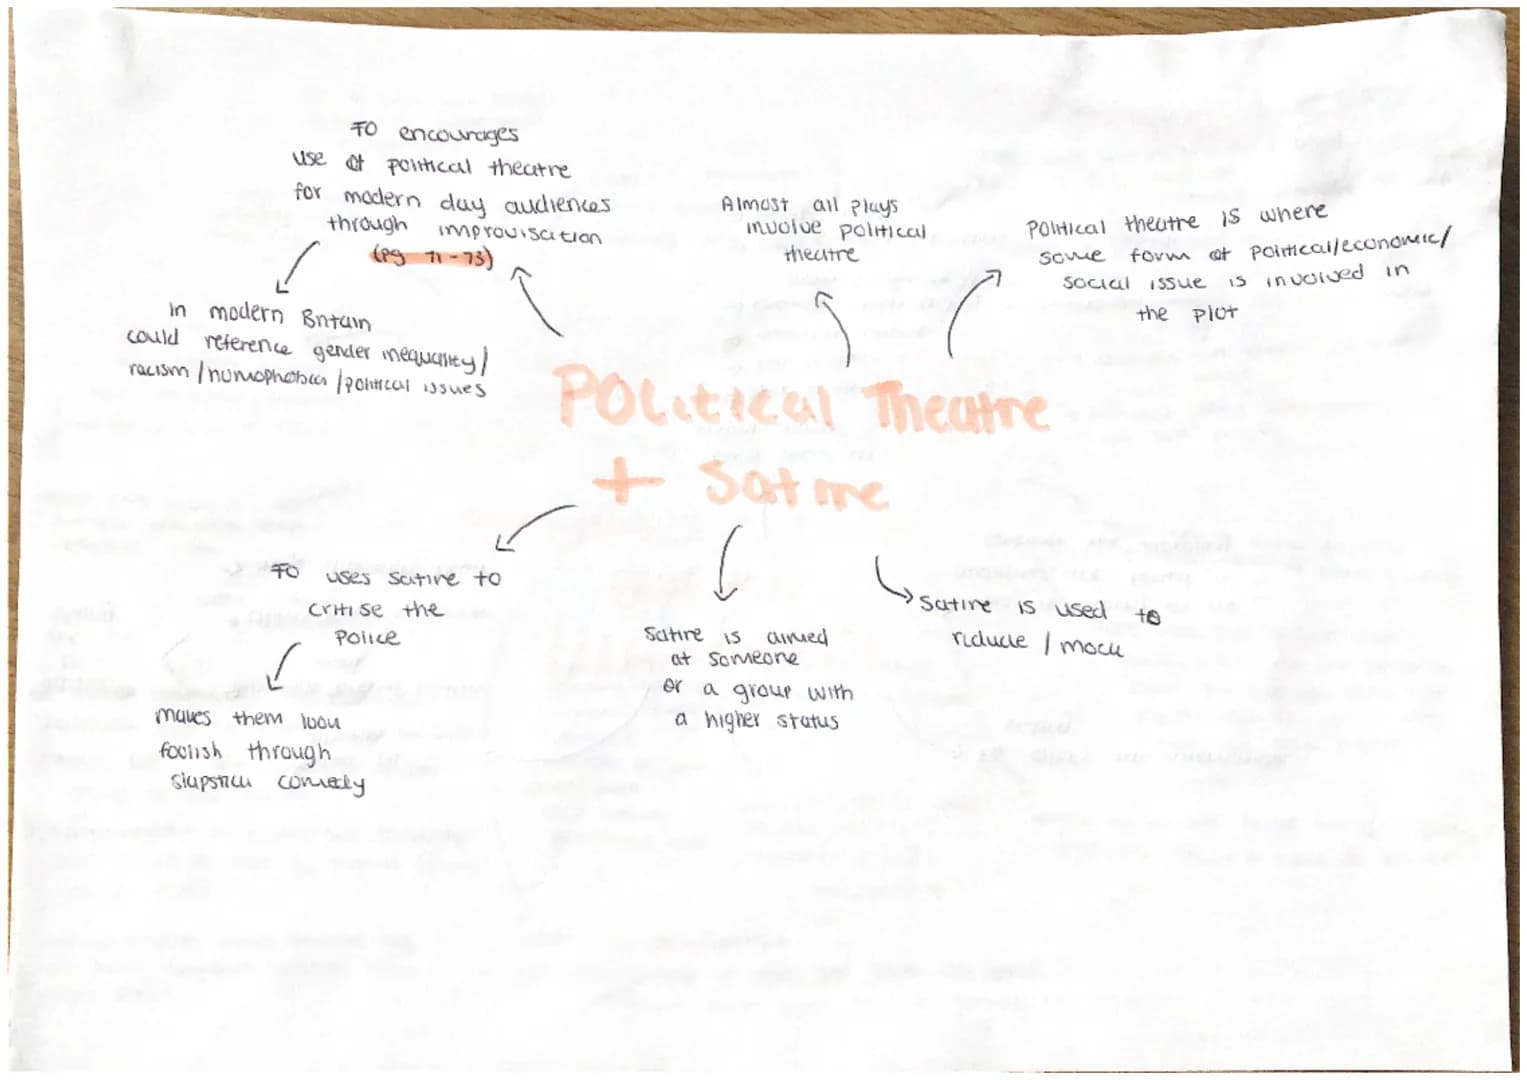 FO encourages
use of political theatre
for modern day audiences
through improvisation
(pg 71-73)
In modern Britain
could reference gender inequality/
racism/homophobia/political issues
Almost all plays
involve political
theatre
Political theatre is where
some form of political/economic/
social issue is involved in
the plot
Political Theatre
+ Satire
FO uses satire to
critise the
police
makes them look
foolish through
slapstick comedy
Satire is aimed
at someone
or a group with
a higher status
Satire is used to
riducle / mock